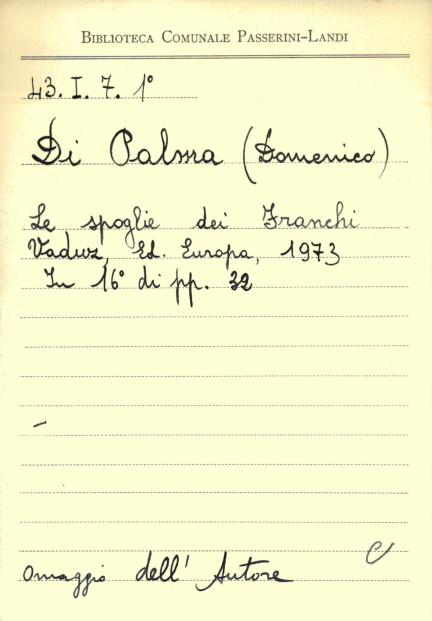 BIBLIOTECA COMUNALE PASSERINI-LANDI
43. I. 7. 1°
Di Palma (Domenico)
Le spoglie dei Franchi
Vaduz, Ed. Europa, 1973
In 16° di pp. 32
C
Omaggio dell' Autore